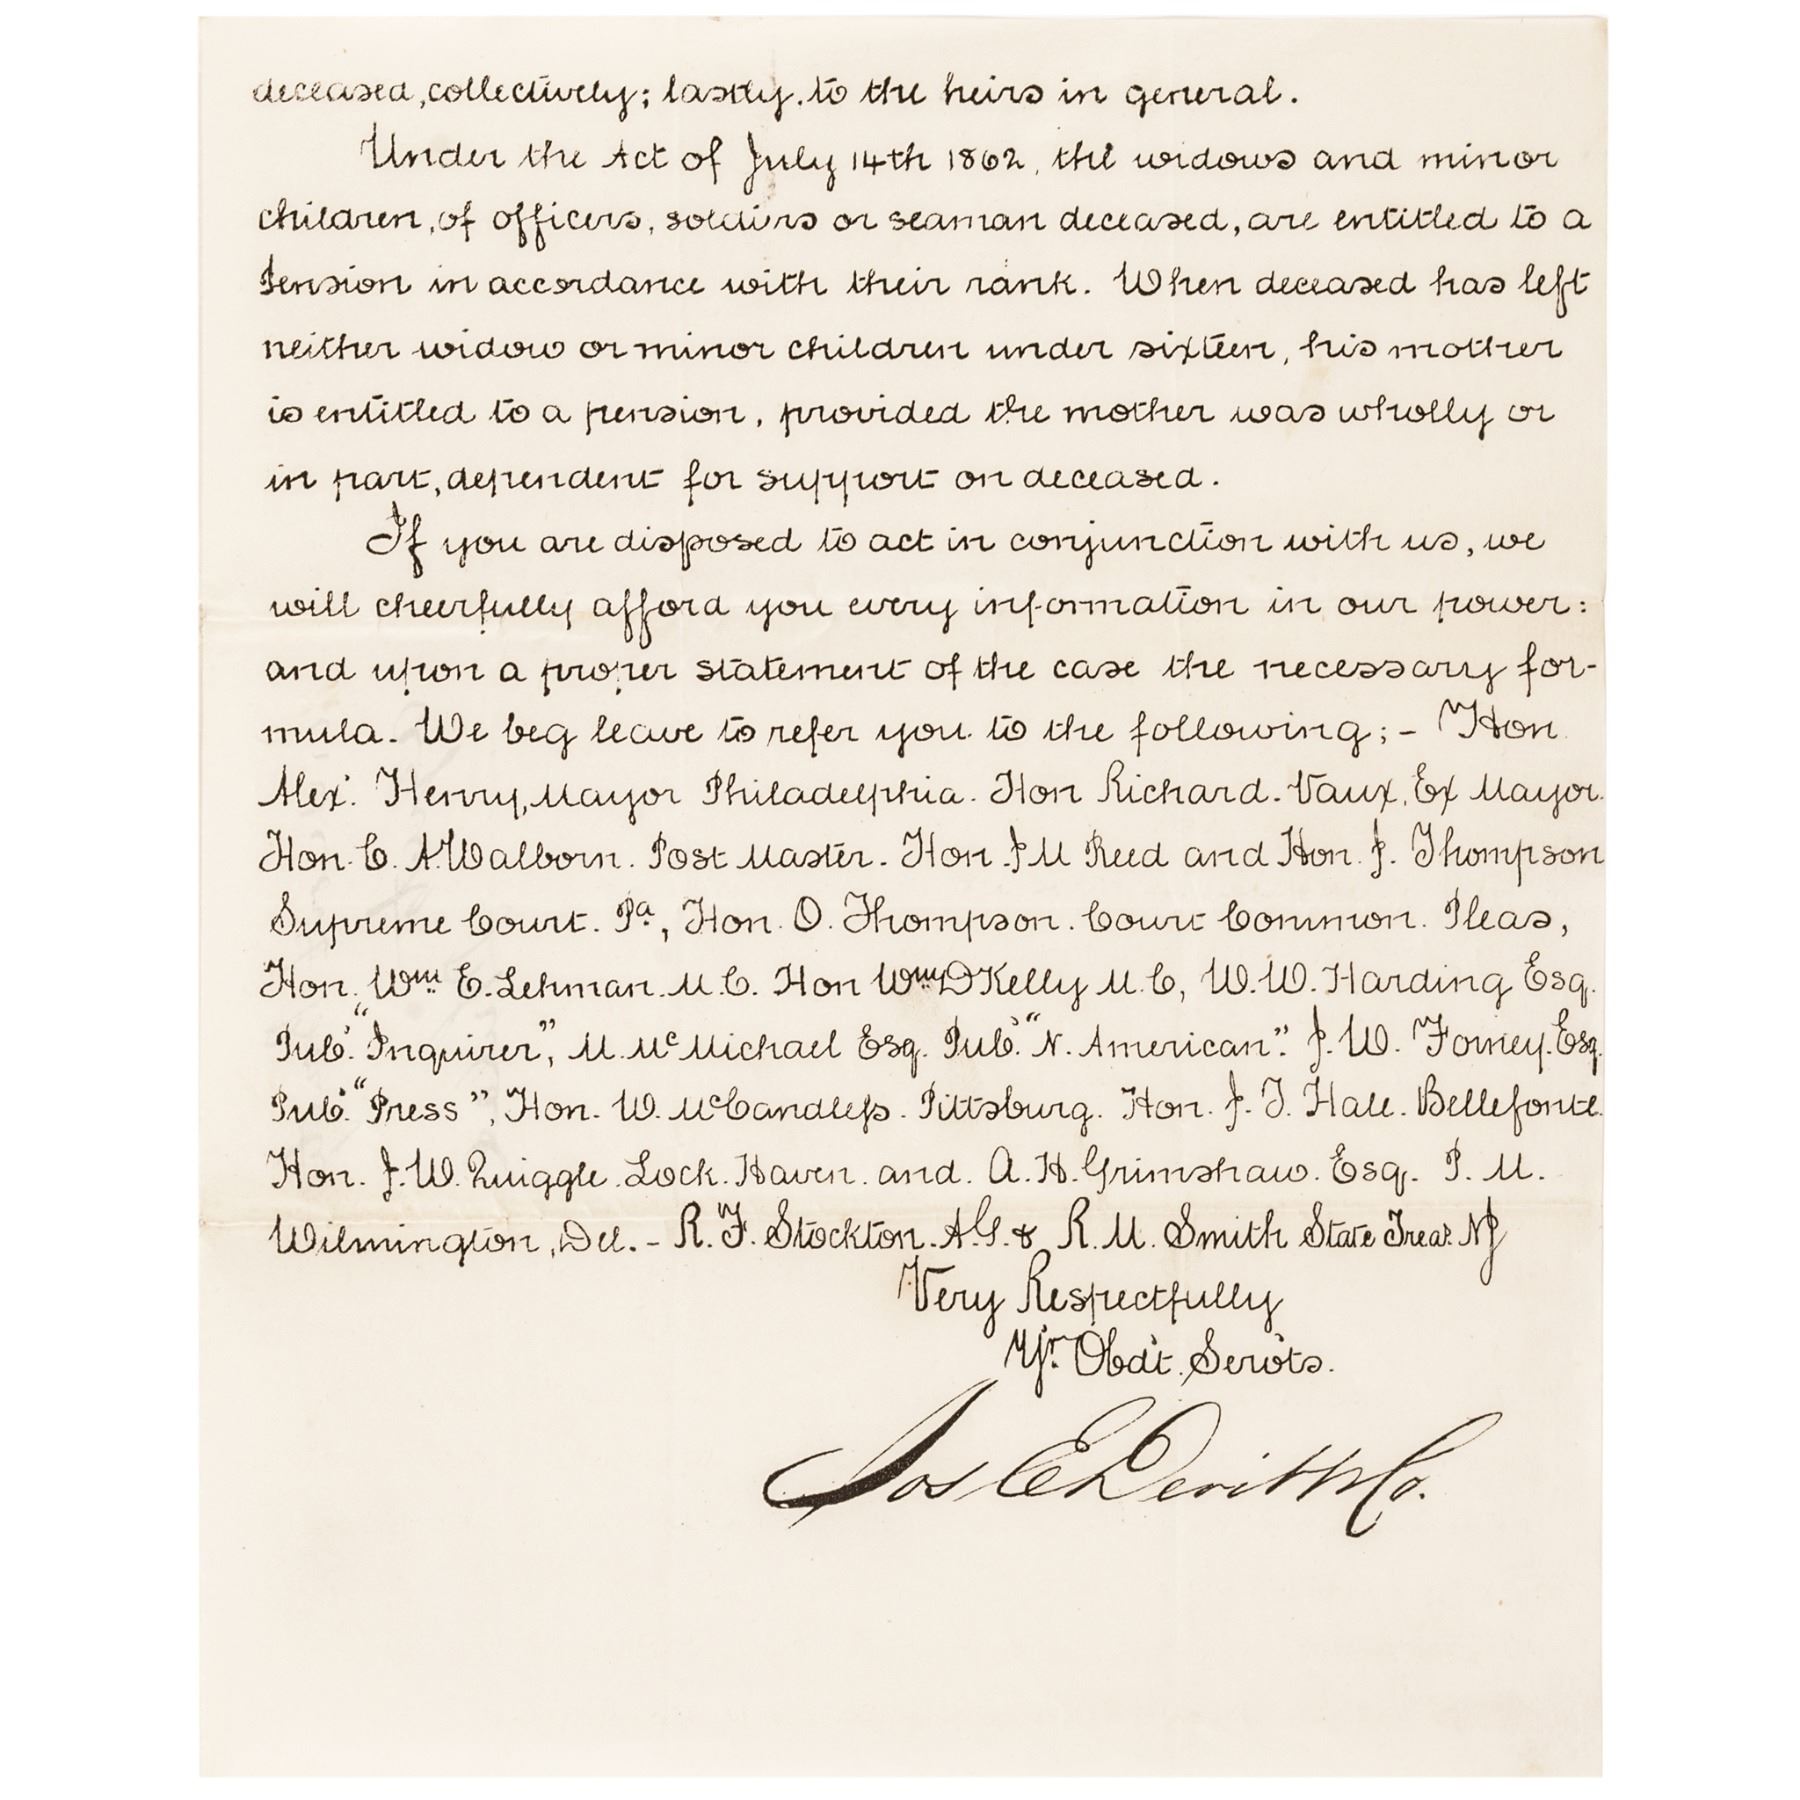 deceased, collectively; lastly, to the heirs in general.
Under the Act of July 14th 1862, the widows and minor
children, of officers, soldiers or seaman deceased, are entitled to a
Pension in accordance with their rank. When deceased has left
neither widow or minor children under sixteen, his mother
is entitled to a pension, provided the mother was wholly or
in part, dependent for support on deceased.
If you are disposed to act in conjunction with us, we
will cheerfully afford you every information in our power:
and upon a proper statement of the case the necessary for-
mula. We beg leave to refer you to the following; - Hon
Alex. Henry, Mayor Philadelphia. Hon Richard. Vaux, Ex Mayor.
Hon. C. A. Walborn. Post Master. Hon. J M Reed and Hon. J. Thompson
Supreme Court. Pa, Hon. O. Thompson. Court Common. Pleas,
Hon. Wm E. Lehman. M. C. Hon Wm D Kelly M. C, W. W. Harding Esq.
Pub. "Inquirer", M. McMichael Esq. Pub. "N. American". J. W. Forney. Esq.
Pub. "Press", Hon. W. McCandless. Pittsburg. Hon. J. T. Hale. Bellefonte.
Hon. J. W. Quiggle. Lock. Haven. and. A. H. Grimshaw. Esq. P. M.
Wilmington, Del. - R. F. Stockton. A. G. & R. M. Smith State Treas. NJ
Very Respectfully
Yr. Obd't. Serv'ts.
Jos E Devitt & Co.